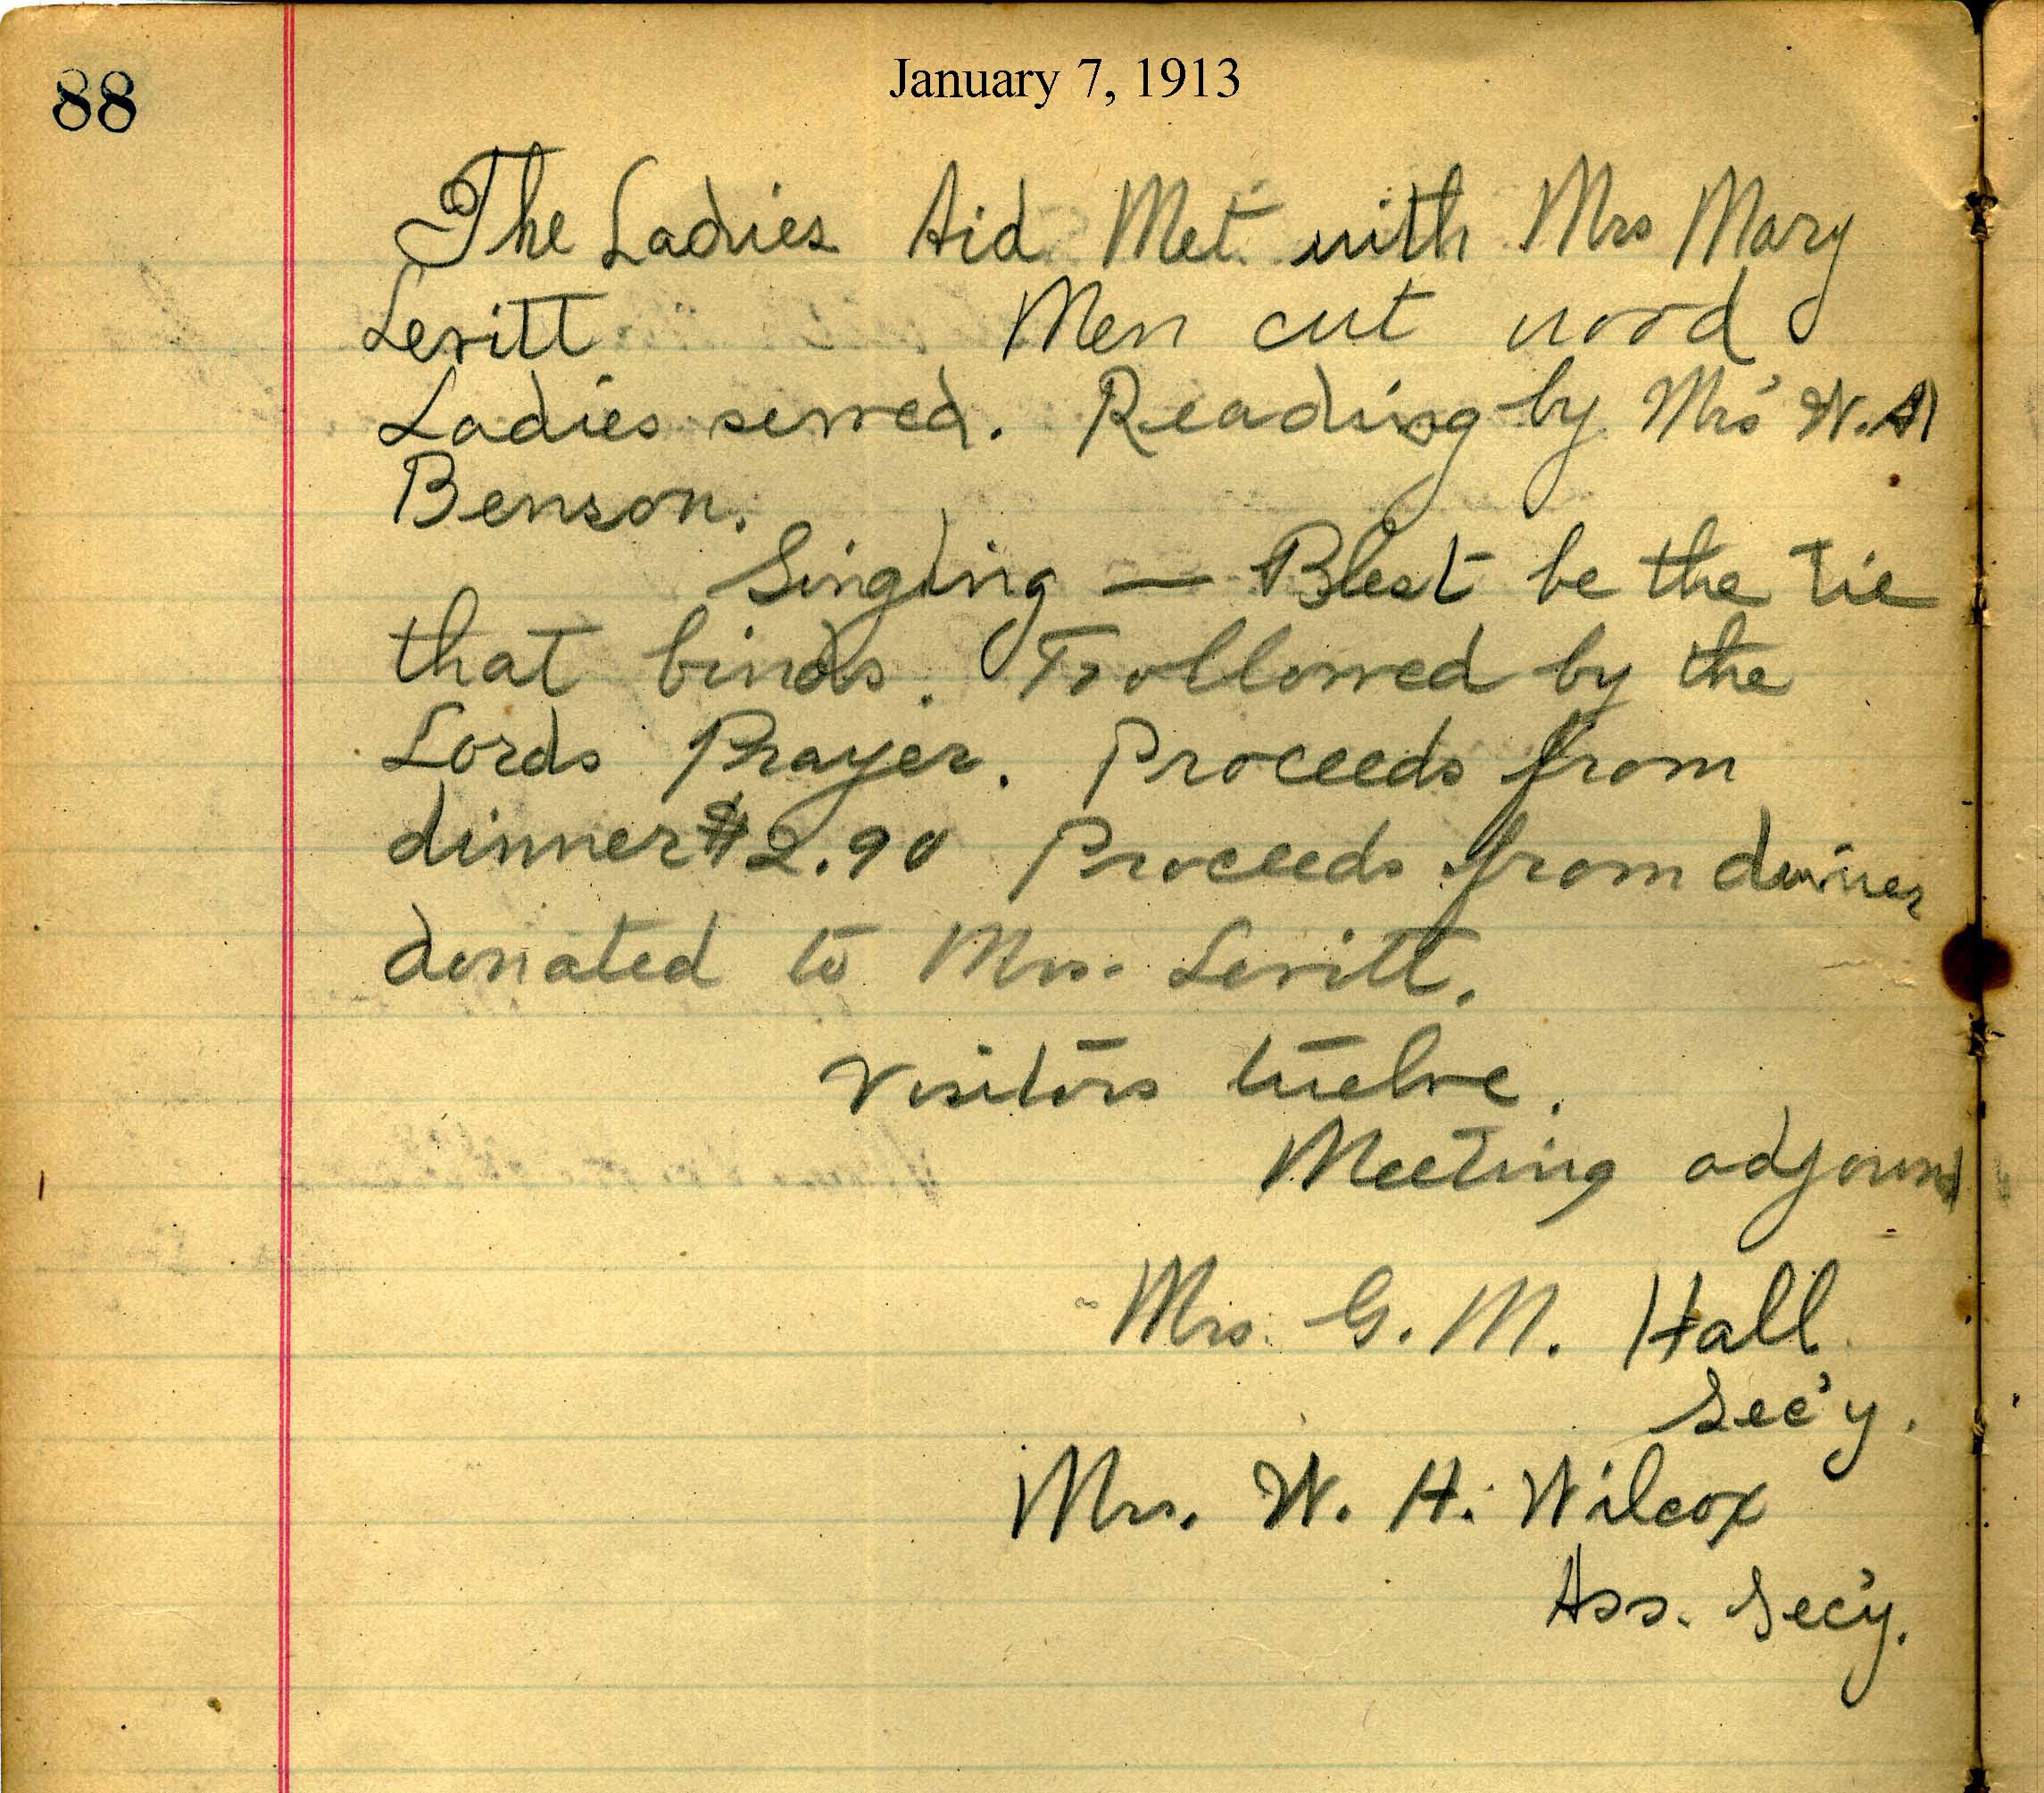 88
January 7, 1913
The Ladies Aid Met with Mrs Mary
Levitt Men cut wood
Ladies served. Reading by Mrs W. H
Benson.
Singing — Blest be the tie
that binds. Followed by the
Lords Prayer. Proceeds from
dinner $2.90 Proceeds from dinner
donated to Mrs. Levitt.
Visitors twelve.
Meeting adjourned
Mrs. G. M. Hall
Sec'y.
Mrs. W. H. Wilcox
Ass. Sec'y.